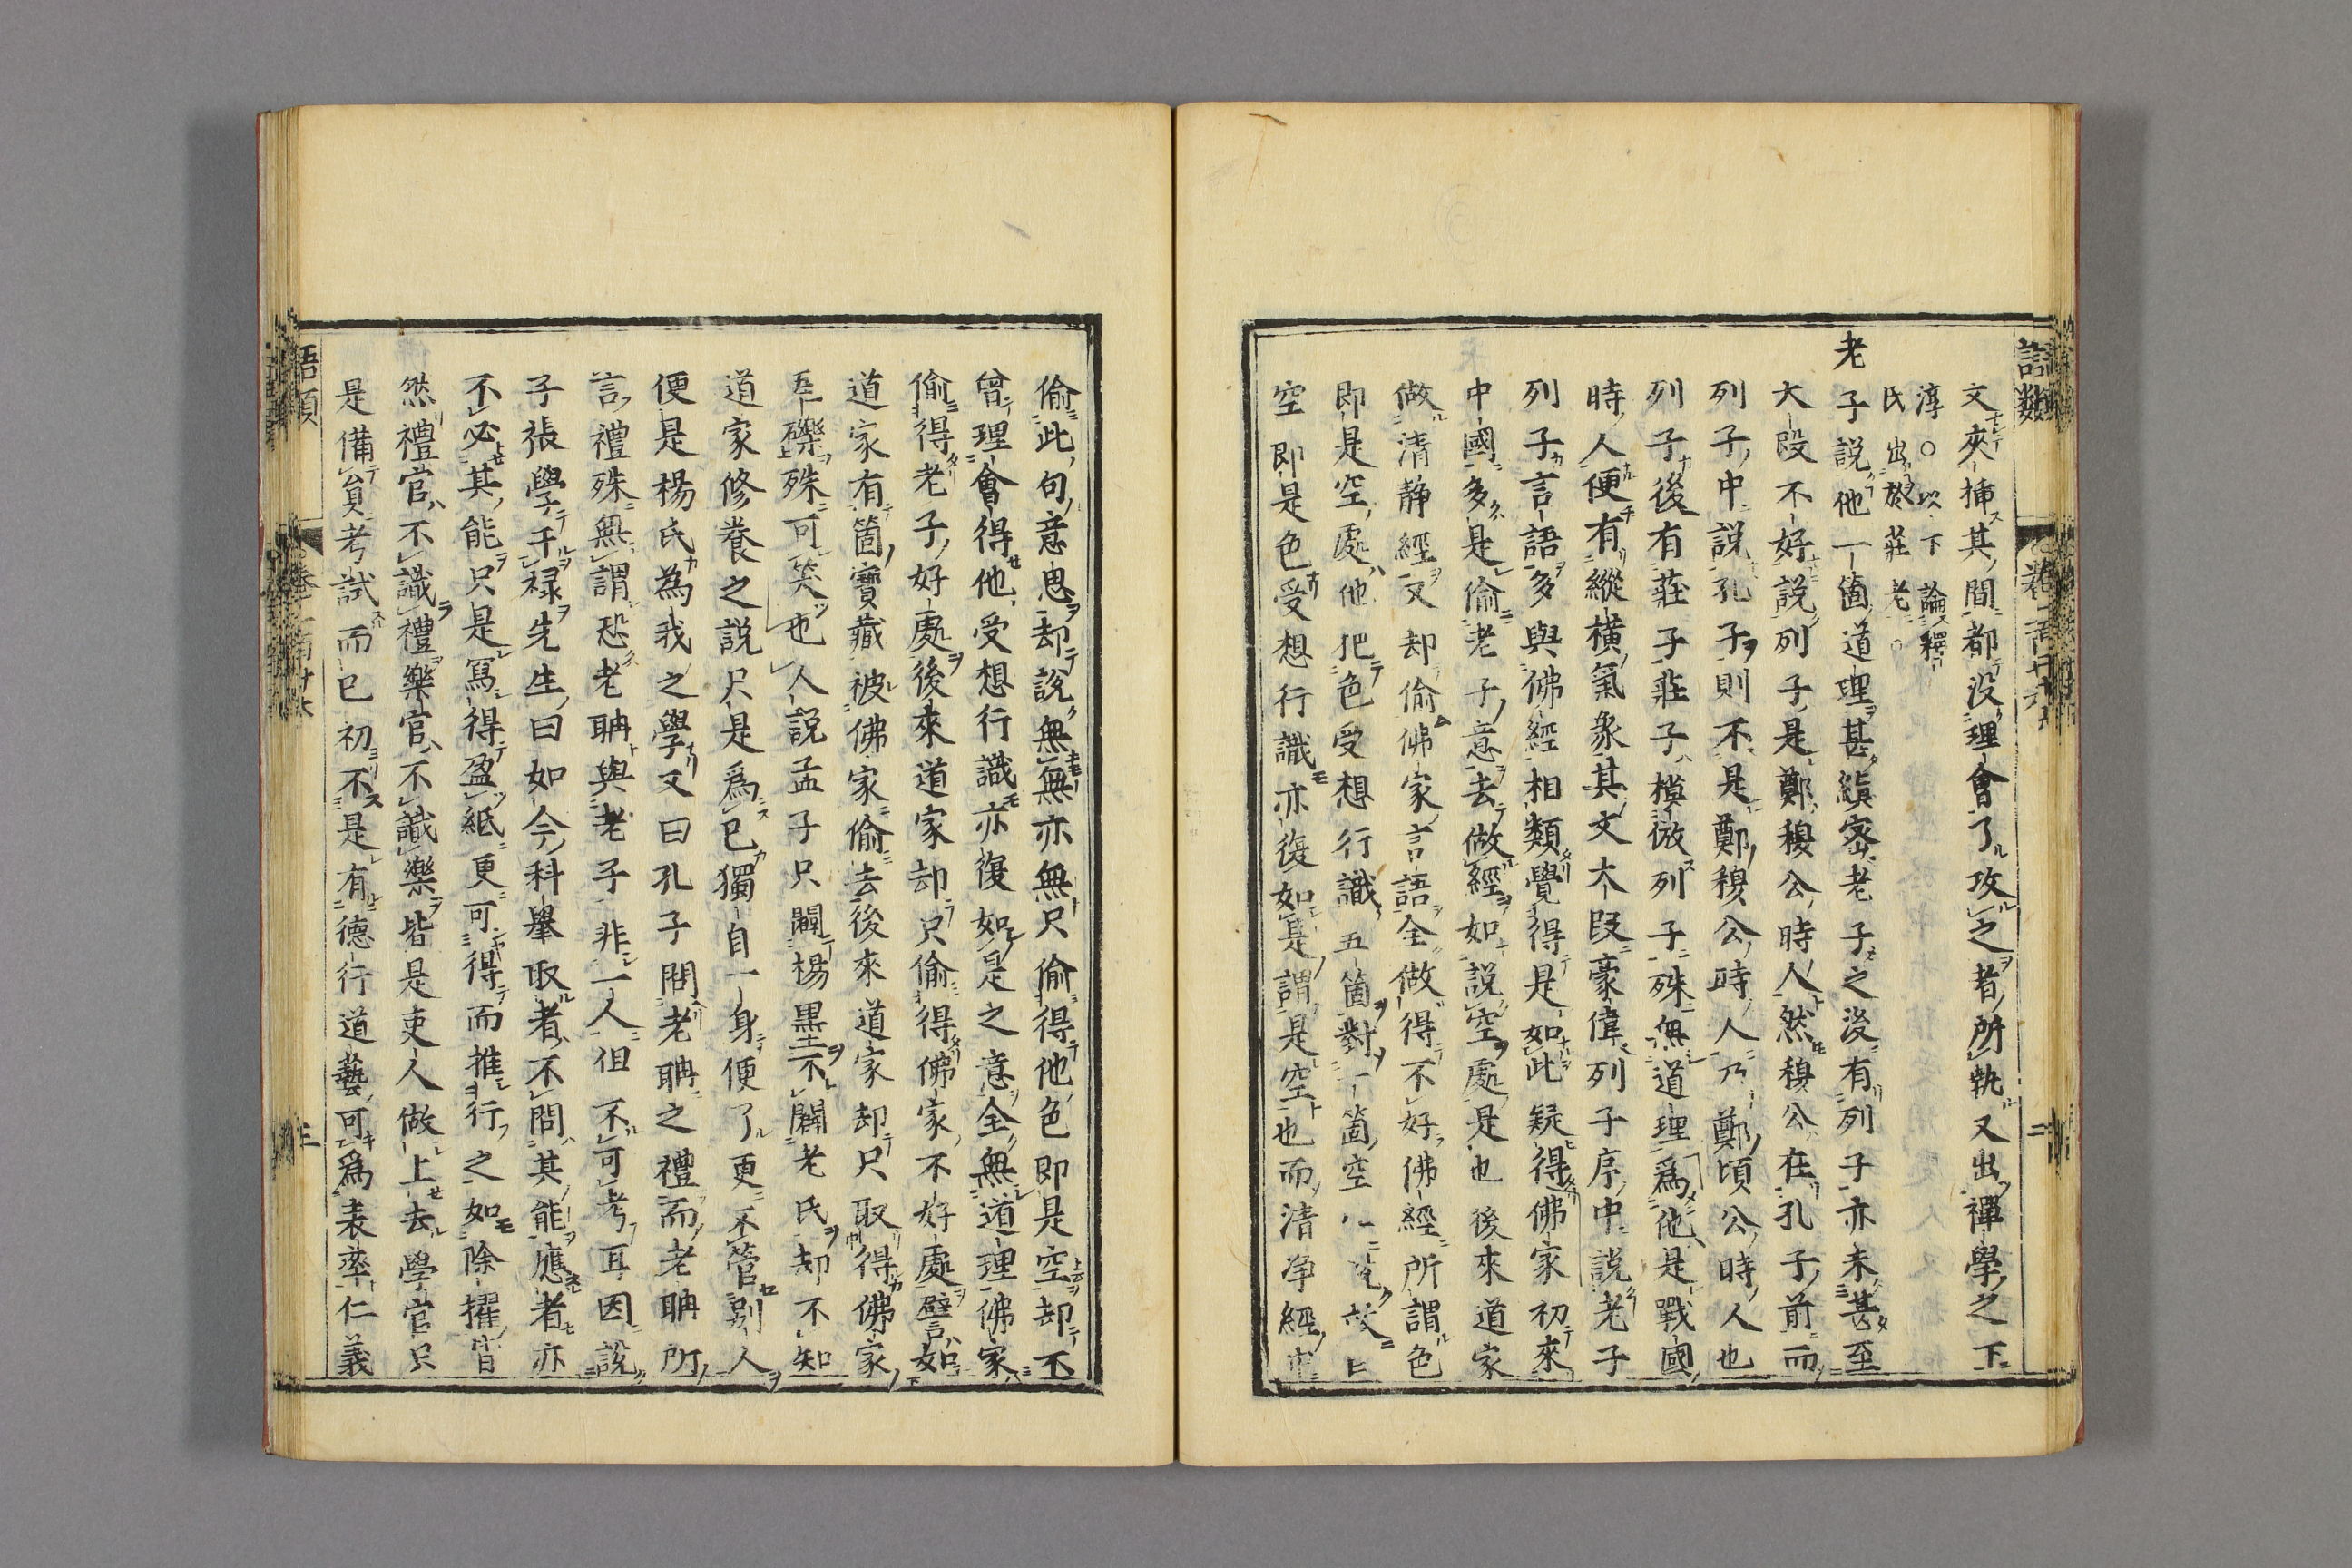 文夾插其間都沒理會了攻之者所執又出禪學之下
淳○以下論釋
氏出於莊老○
老子說他一箇道理甚縝密老子之後有列子亦未甚至
大段不好說列子是鄭穆公時人然穆公在孔子前而
列子中說孔子則不是鄭穆公時人乃鄭頃公時人也
列子後有莊子莊子模倣列子殊無道理爲他是戰國
時人便有縱橫氣象其文大段豪偉列子序中說老子
列子言語多與佛經相類覺得是如此疑得佛家初來
中國多是偷老子意去做經如說空處是也後來道家
做清靜經又却偷佛家言語全做得不好佛經所謂色
即是空處他把色受想行識五箇對一箇空故曰
空即是色受想行識亦復如是謂是空也而清淨經中
偷此句意思却說無無亦無只偷得他色即是空却不
曾理會得他受想行識亦復如是之意全無道理佛家
偷得老子好處後來道家却只偷得佛家不好處譬如
道家有箇寶藏被佛家偷去後來道家却只取得佛家
瓦礫殊可笑也人說孟子只闢楊墨不闢老氏却不知
道家修養之說只是爲已獨自一身便了更不管別人
便是楊氏為我之學又曰孔子問老聃之禮而老聃所
言禮殊無謂恐老聃與老子非一人但不可考耳因說
子張學干禄先生曰如今科舉取者不問其能應者亦
不必其能只是寫得盈紙更可得而推行之如除擢皆
然禮官不識禮樂官不識樂皆是吏人做上去學官只
是備員考試而已初不是有德行道藝可爲表率仁義